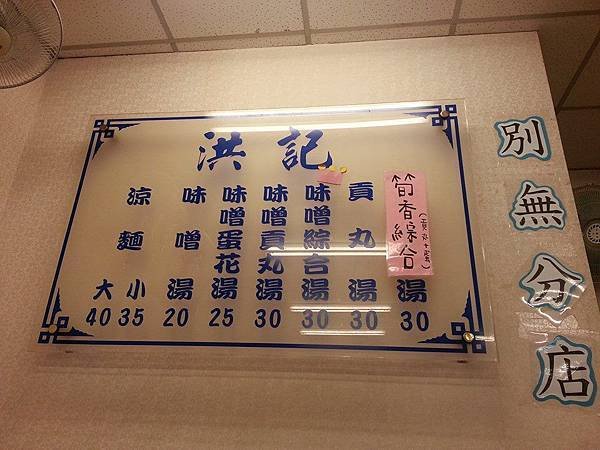 洪記
涼麵
大 40
小 35
味噌湯 20
味噌蛋花湯 25
味噌貢丸湯 30
味噌綜合湯 30
貢丸湯 30
筍香綜合
(貢丸+蛋)
湯 30
別無分店